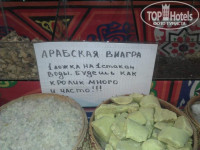 TOP Hotels
АРАБСКАЯ ВИАГРА
1 ЛОЖКА НА 1 СТАКАН
ВОДЫ. БУДЕШЬ КАК
КРОЛИК МНОГО
И ЧАСТО!!!